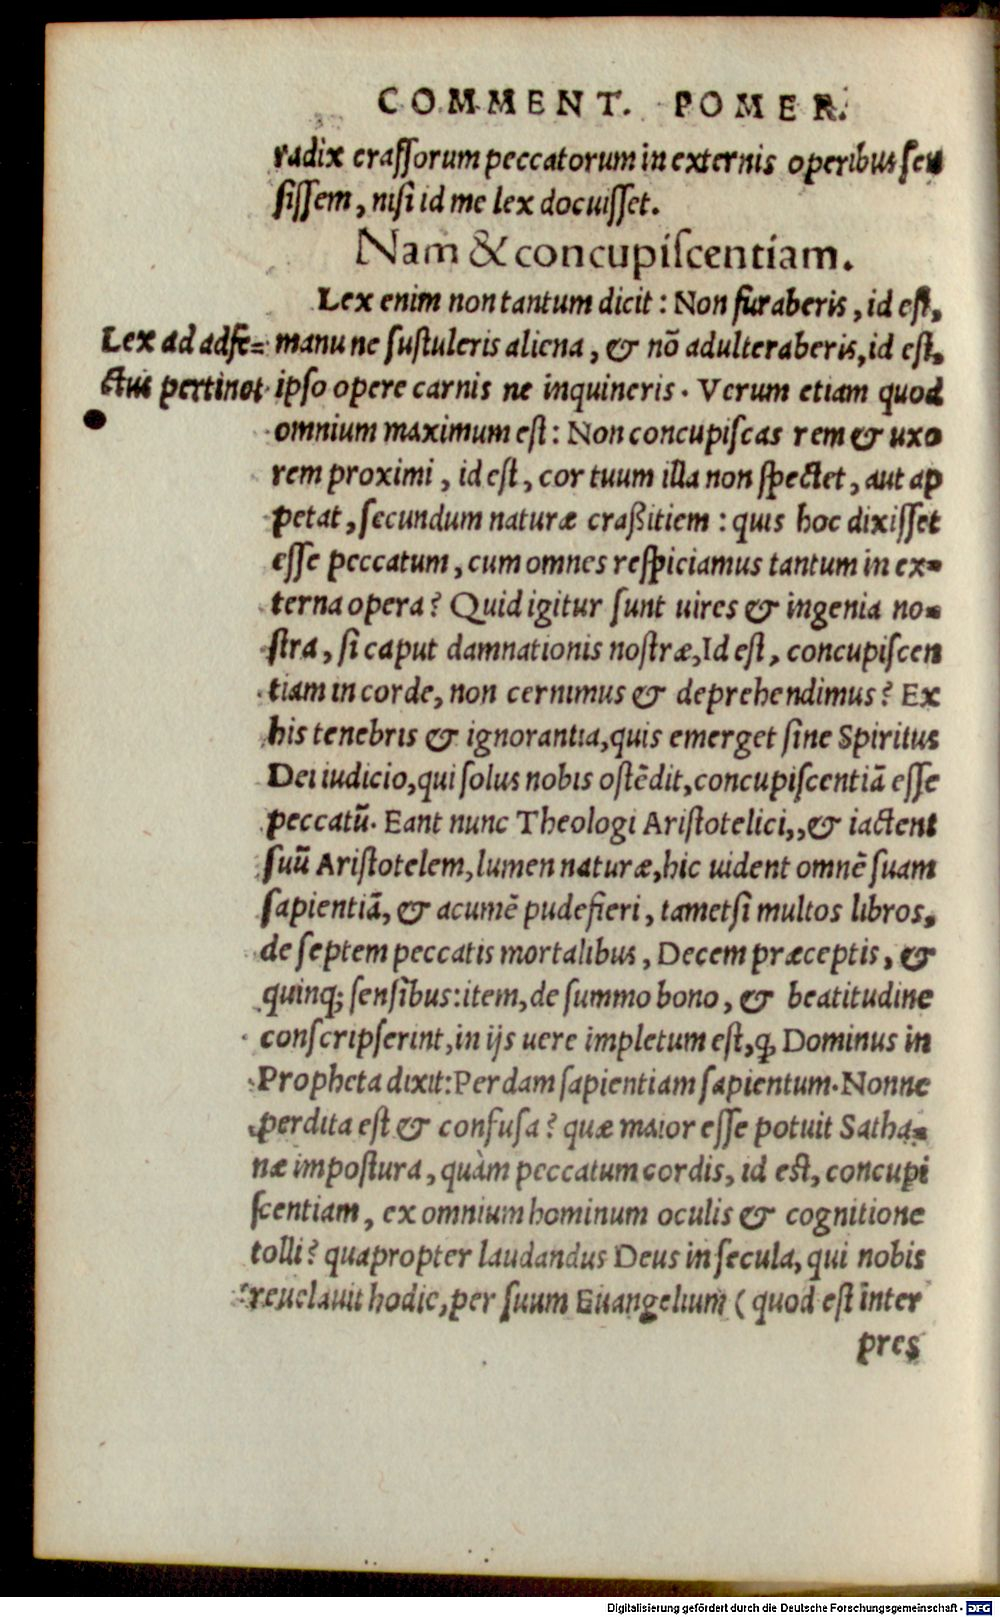 COMMENT. POMER.
radix crassorum peccatorum in externis operibus sen
sissem, nisi id me lex docuisset.
Nam & concupiscentiam.
Lex enim non tantum dicit: Non furaberis, id est,
Lex ad adfe=
manu ne sustuleris aliena, & nõ adulteraberis, id est,
ctus pertinet
ipso opere carnis ne inquineris. Verum etiam quod
omnium maximum est: Non concupiscas rem & uxo
rem proximi, id est, cor tuum illa non spectet, aut ap
petat, secundum naturæ craßitiem: quis hoc dixisset
esse peccatum, cum omnes respiciamus tantum in ex=
terna opera? Quid igitur sunt uires & ingenia no=
stra, si caput damnationis nostræ, Id est, concupiscen
tiam in corde, non cernimus & deprehendimus? Ex
his tenebris & ignorantia, quis emerget sine Spiritus
Dei iudicio, qui solus nobis ostẽdit, concupiscentiã esse
peccatũ. Eant nunc Theologi Aristotelici,, & iactent
suũ Aristotelem, lumen naturæ, hic uident omnẽ suam
sapientiã, & acumẽ pudefieri, tametsi multos libros,
de septem peccatis mortalibus, Decem præceptis, &
quinq; sensibus: item, de summo bono, & beatitudine
conscripserint, in ijs uere impletum est, ꝙ Dominus in
Propheta dixit: Perdam sapientiam sapientum. Nonne
perdita est & confusa? quæ maior esse potuit Satha=
næ impostura, quàm peccatum cordis, id est, concupi
scentiam, ex omnium hominum oculis & cognitione
tolli? quapropter laudandus Deus in secula, qui nobis
reuelauit hodie, per suum Euangelium (quod est inter
pres
Digitalisierung gefördert durch die Deutsche Forschungsgemeinschaft - DFG